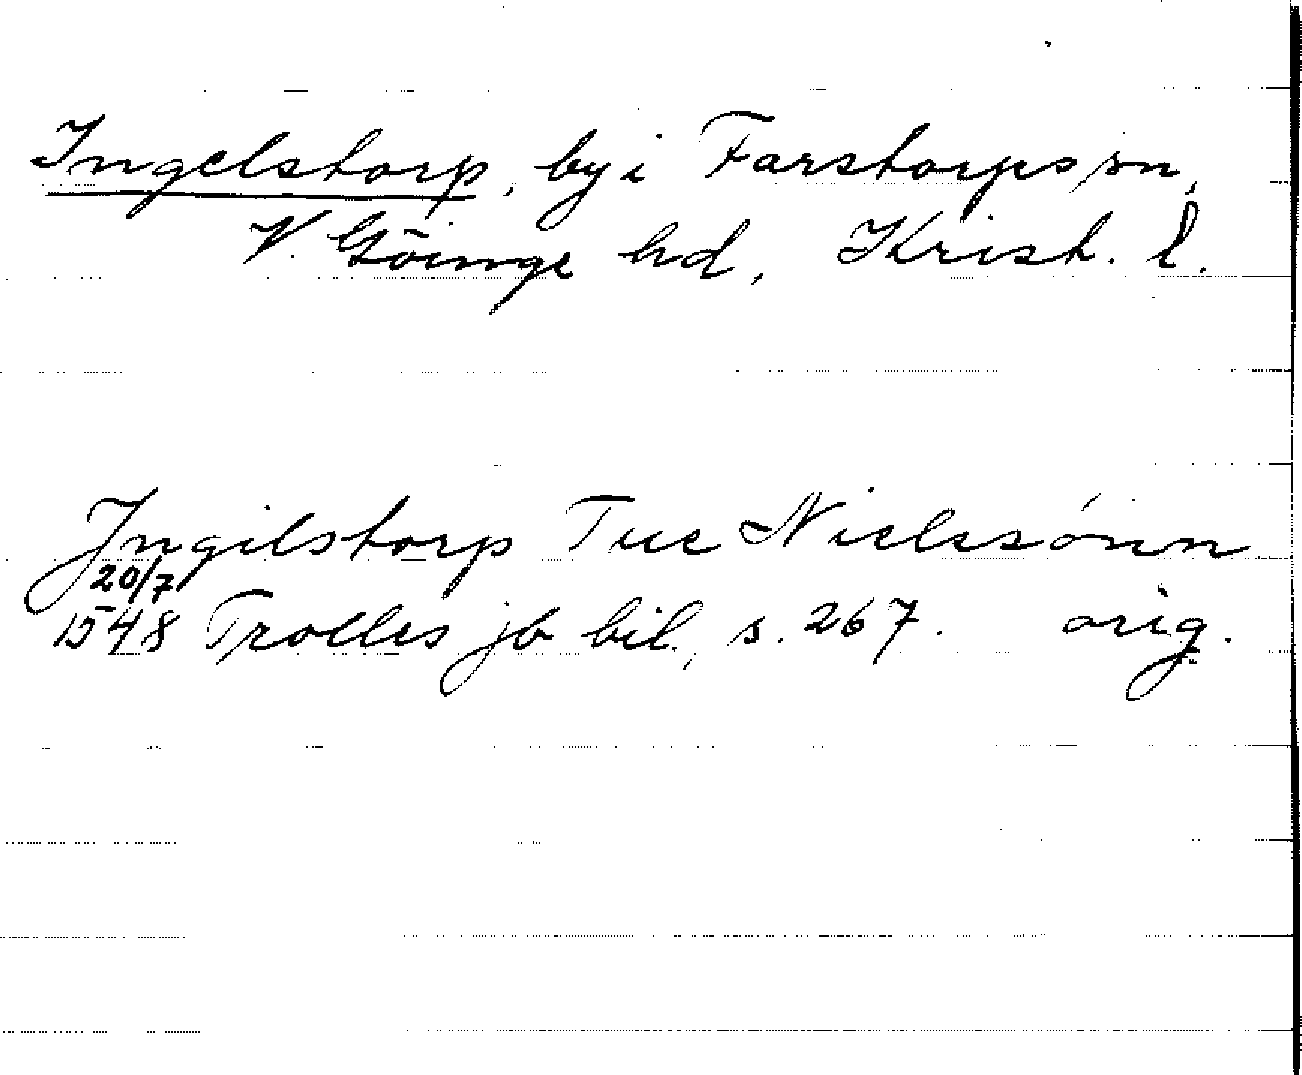 Ingelstorp, by i Farstorps sn,
V. Göinge hd, Krist. l.
Ingilstorp Tue Nielssónn
20/7
1548 Trolles jb bil., s. 267. orig.